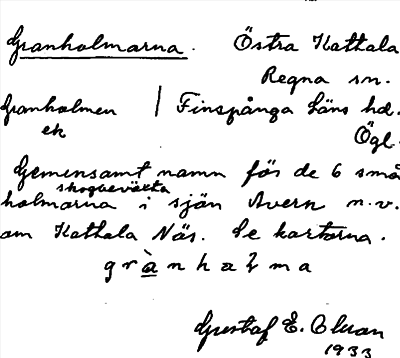 Granholmarna. Östra Kattala
Regna sn.
Granholmen | Finspånga läns hd.
ek Ögl.
Gemensamt namn för de 6 små
skogbeväxta
holmarna i sjön Avern n.v.
om Kattala Näs. Se kartorna.
grànhaɫma
Gustaf E.
1933